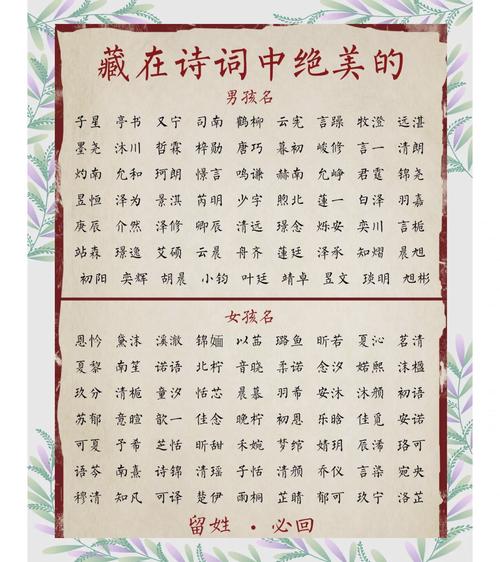 藏在诗词中绝美的
男孩名
子星 亭书 又宁 司南 鹤柳 云宪 言躁 牧澄 远湛
墨尧 沐川 哲霖 梓勋 唐巧 暮初 峻修 言一 清朗
灼南 允和 珂朗 憬言 鸣谦 赫南 允峥 君霆 锦尧
昱恒 泽为 景淇 芮明 少宇 煦北 莲一 白泽 羽嘉
庚辰 介然 泽修 卿辰 清远 璟念 烁安 奕川 言栀
站森 璟逸 艾硕 云晨 舟齐 莲廷 泽承 知熠 晨旭
初阳 奕辉 胡晨 小钧 叶廷 靖卓 昱文 琰明 旭彬
女孩名
恩忴 黛沫 溪澈 锦婳 以苗 璐鱼 昕若 夏沁 茗清
夏黎 南笙 诺语 北柠 音晓 柔诺 念汐 婼熙 沫楹
玖分 清栀 童汐 恬芯 晨慕 羽希 安沐 沐颜 初语
苏郁 意暄 歆一 佳念 晚柠 初恩 乐晗 佳觅 安诺
可夏 予希 芝恬 昕甜 禾婉 梦绾 婧玥 辰浠 珞可
语芩 南熹 诗锦 清瑶 子恬 清颜 乔仪 言染 宛央
穆清 知凡 可译 楚伊 雨桐 芷晴 郁可 玖宁 洛芷
留姓 · 必回